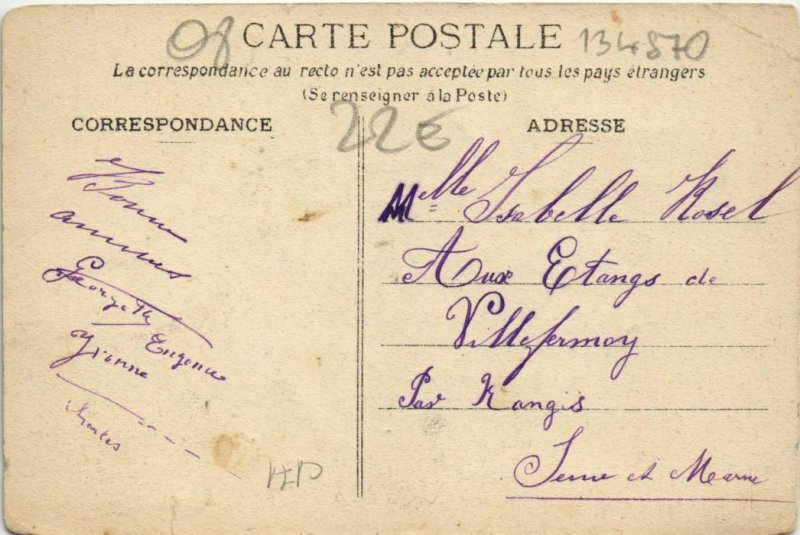 08 CARTE POSTALE 134870
La correspondance au recto n'est pas acceptée par tous les pays étrangers
(Se renseigner à la Poste)
22€
CORRESPONDANCE
Georgette
Eugenie
AD
ADRESSE
Melle Isabelle Rosel
Aux Etangs de
Villefermoy
Par Nangis
Seine et Marne